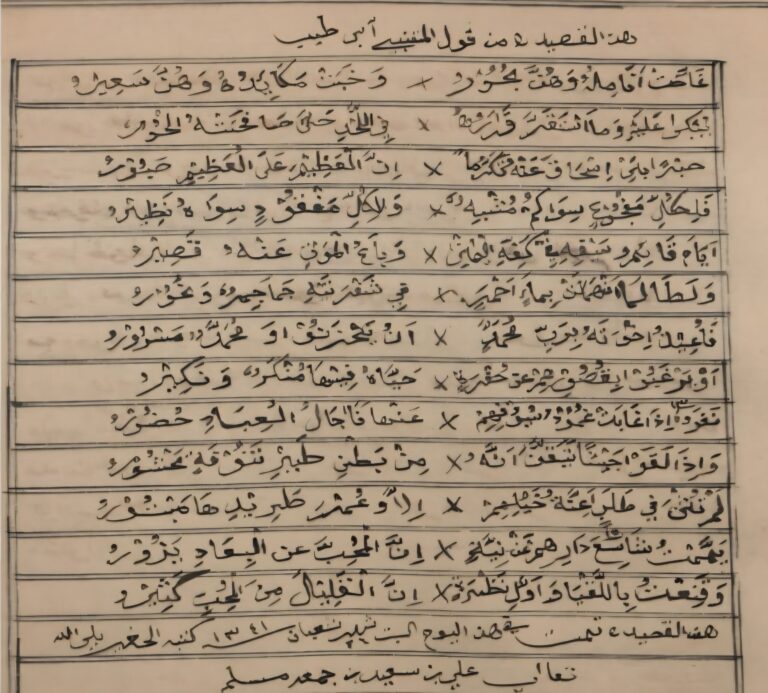 هذه القصيدة من قول المتنبي أبي طيب
غاضت أنامله وهن بحور × وخبت مكايده وهن سعير
يبكى عليه وما استقر قراره × في اللحد حتى صافحته الحور
صبرا بني إسحاق عنه تكرما × إن العظيم على العظيم صبور
فلكل مفجوع سواكم مشبه × ولكل مفقود سواه نظير
أيام قائم سيفه في كفه اليمنى × وباع الموت عنه قصير
ولطالما انهملت بماء أحمر × في شفرتيه جماجم ونحور
فأعيذ إخوته برب محمد × أن يحزنوا ومحمد مسرور
أو يرغبوا بقصورهم عن حفرة × حياه فيها منكر ونكير
نفر إذا غابت غمود سيوفهم × عنها فآجال العباد حضور
وإذا لقوا جيشا تيقن أنه × من بطن طير تنوفة محشور
لم تثن في طلب أعنة خيلهم × إلا وعمر طريدها مبتور
يممت شاسع دارهم عن نية × إن المحب عن البعاد يزور
وقنعت باللقيا وأول نظرة × إن القليل من المحب كثير
هذه القصيدة تمت هذا اليوم شهر شعبان ١٣٤١ كتبه الحقير لله
تعالى علي بن سعيد بن جمعه مسلم